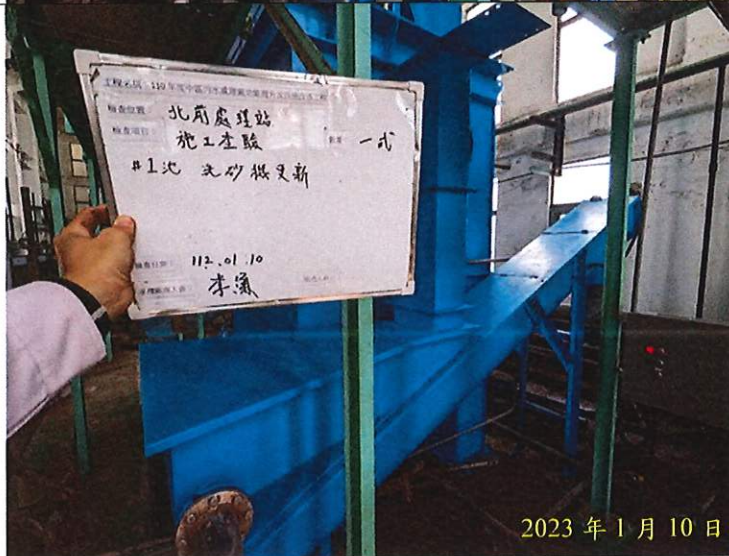 工程名稱: 110年度中區污水處理廠
檢查位置: 北前處理站
檢查項目: 施工查驗 數量: 一式
#1池 洗砂機更新
檢查日期: 112.01.10
2023 年 1 月 10 日